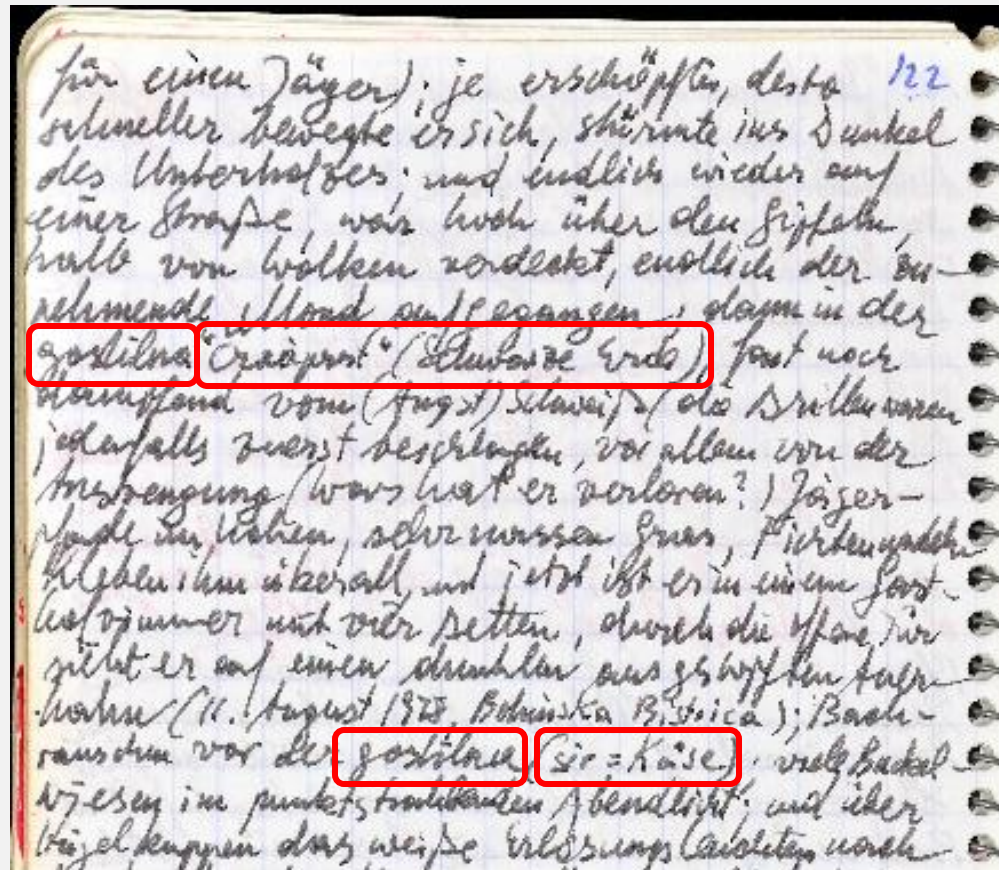 für einen Jäger); je erschöpfter, desto 122
schneller bewegte er sich, stürmte ins Dunkel
des Unterholzes; und endlich wieder auf
einer Straße, war hoch über den Gipfeln,
halb von Wolken verdeckt, endlich der zu-
nehmende Mond aufgegangen; dann in der
gostilna "Črna prst" (Schwarze Erde), fast noch
dampfend vom (Angst) Schweiß (die Brillen waren
jedenfalls zuerst beschlagen, vor allem von der
Anstrengung (was hat er verloren?) Jäger-
pfade im hohen, sehr nassen Gras, Fichtennadeln
kleben ihm überall, und jetzt ist er in einem Gast-
hofzimmer mit vier Betten, durch die offene Tür
sieht er auf einen dunklen ausgestopften Auer-
hahn (11. August 1978, Bohinska Bistrica); Bach-
rauschen vor der gostilna (sir = Käse) viele Buckel-
wiesen im Abendlicht; und über
Hügelkuppen das weiße nach